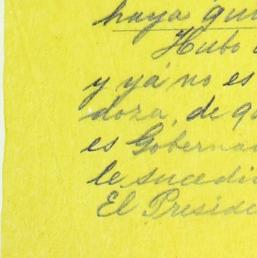 haya qui
Hubo
y ya no es
doza, de q
es Goberna
le sucedi
El Preside